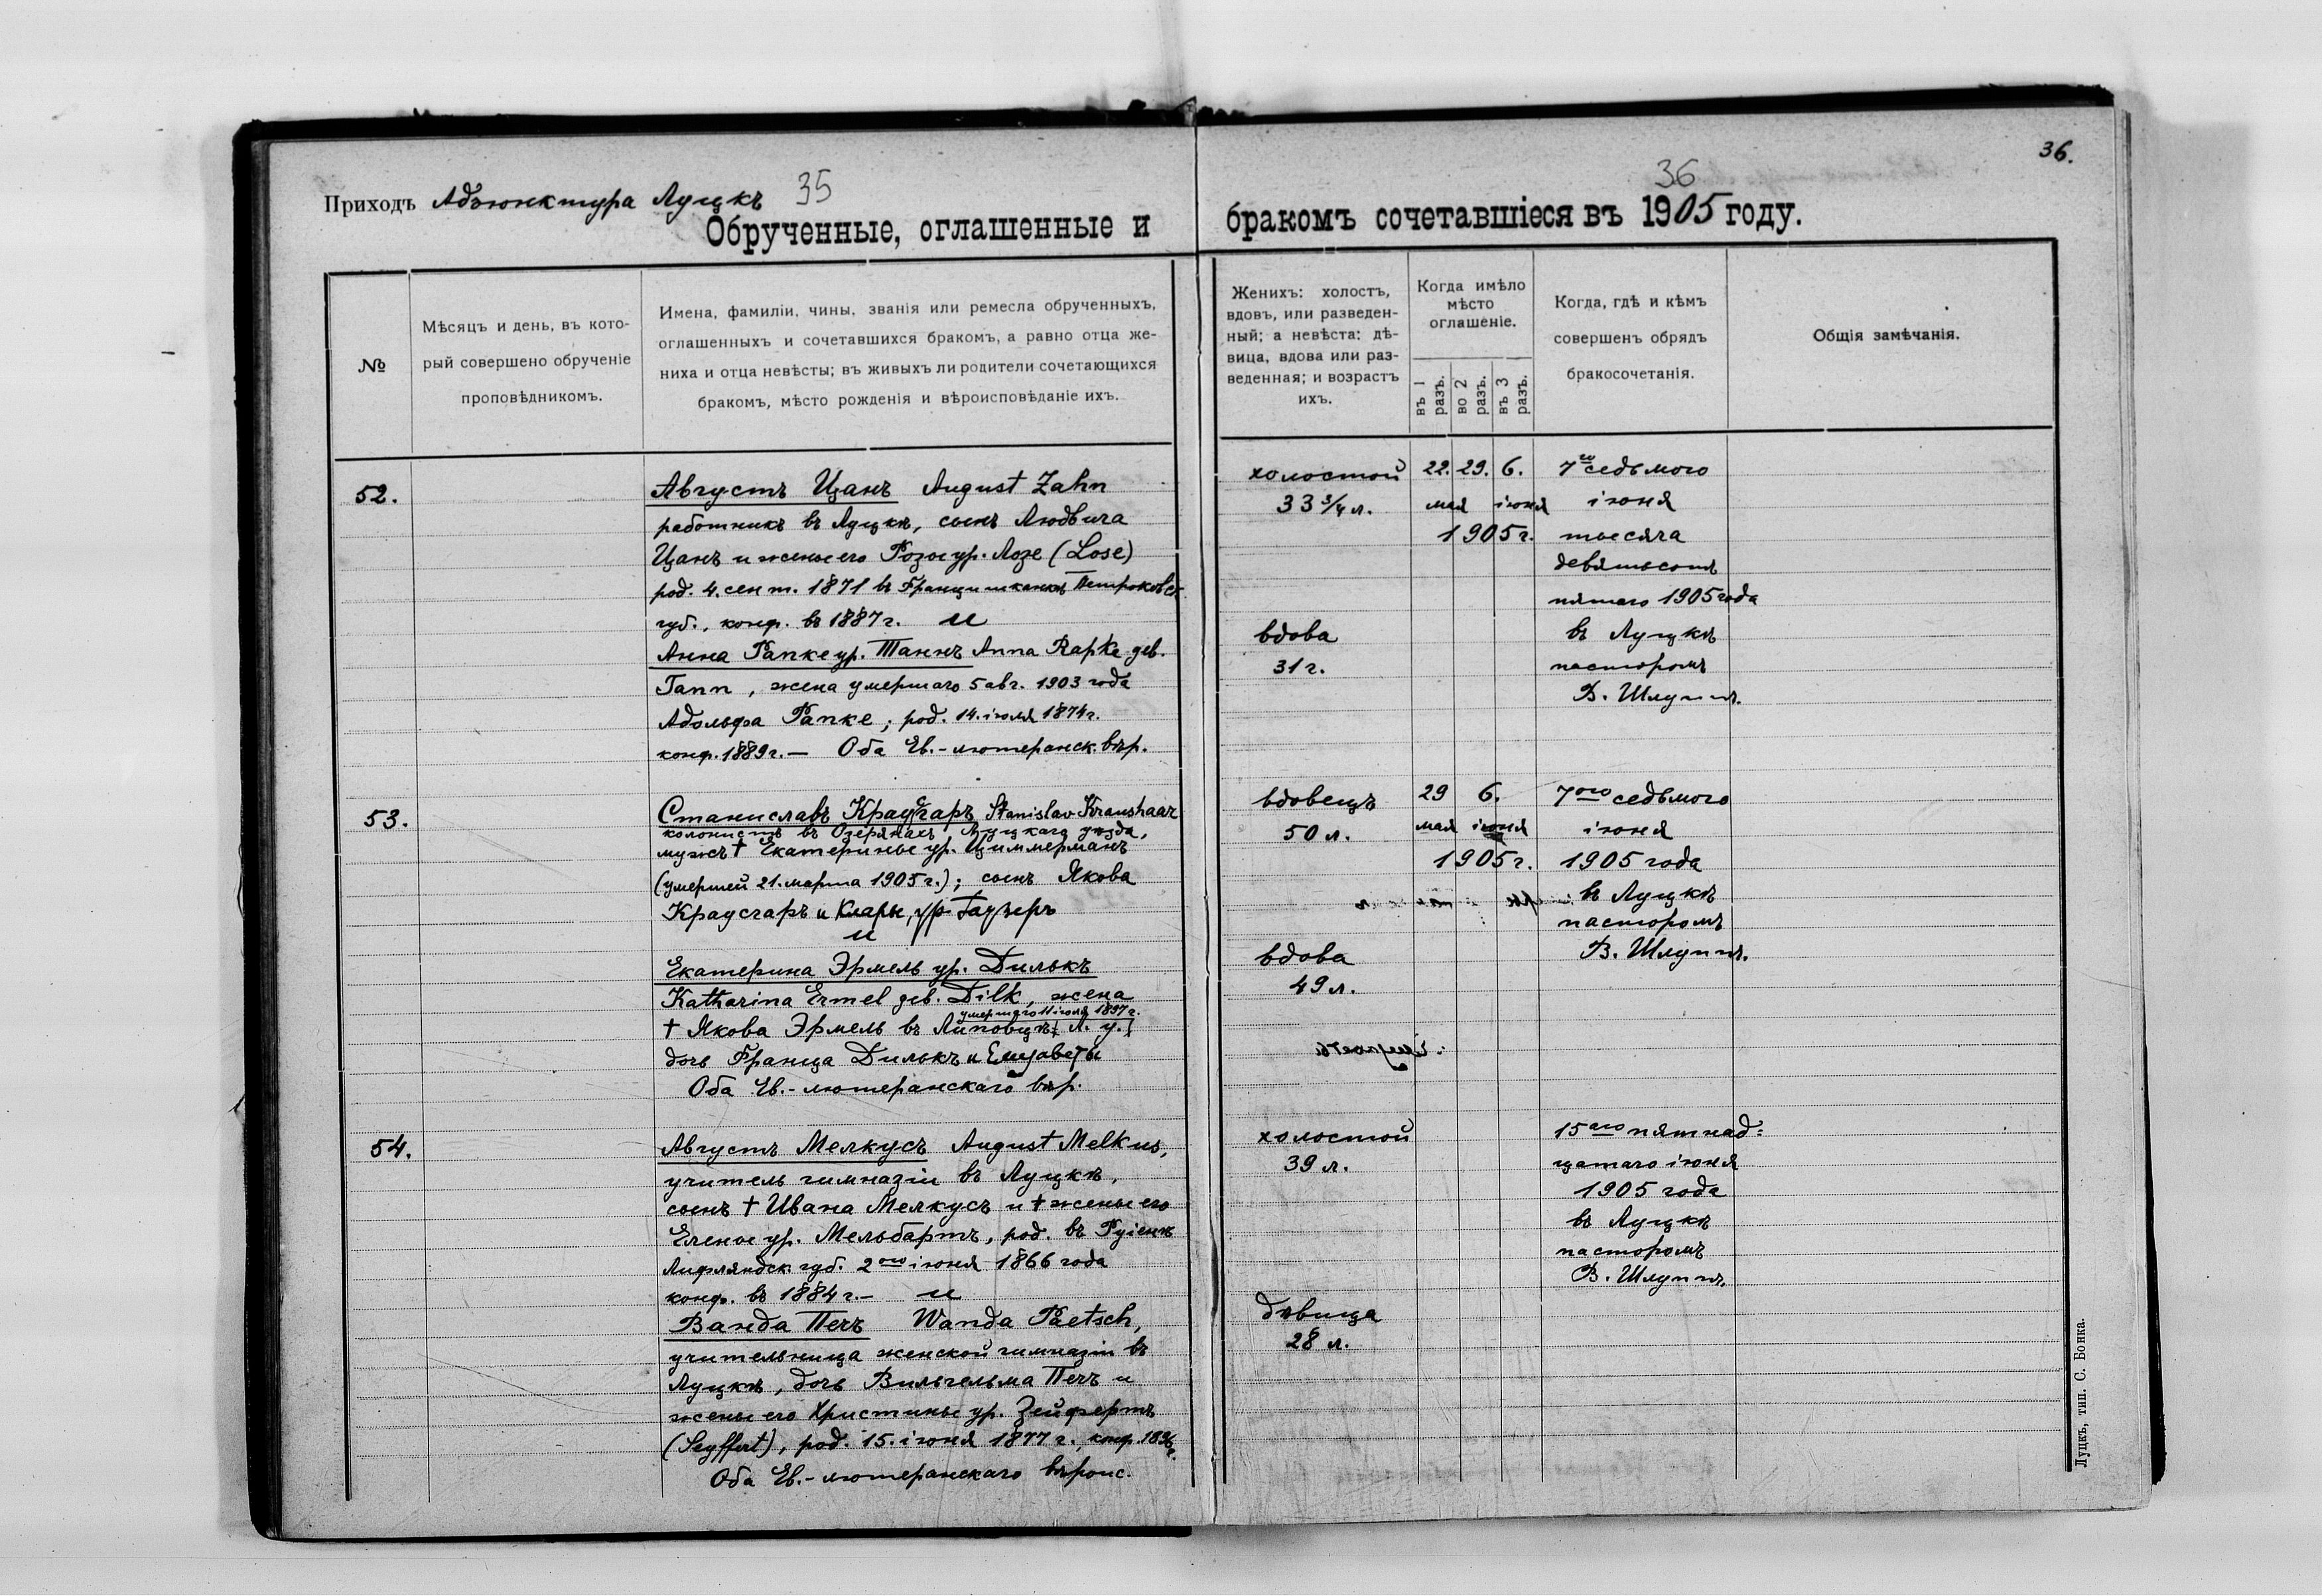 36.
35
36
Приходъ Адъюнктура Луцкъ
Обрученные, оглашенные и бракомъ сочетавшіеся въ 1905 году.
№
Мѣсяцъ и день, въ кото-
рый совершено обрученіе
проповѣдникомъ.
Имена, фамиліи, чины, званія или ремесла обрученныхъ,
оглашенныхъ и сочетавшихся бракомъ, а равно отца же-
ниха и отца невѣсты; въ живыхъ ли родители сочетающихся
бракомъ, мѣсто рожденія и вѣроисповѣданіе ихъ.
Женихъ: холостъ,
вдовъ, или разведен-
ный; а невѣста: дѣ-
вица, вдова или раз-
веденная; и возрастъ
ихъ.
Когда имѣло
мѣсто
оглашеніе.
въ 1 разъ.
во 2 разъ.
въ 3 разъ.
Когда, гдѣ и кѣмъ
совершенъ обрядъ
бракосочетанія.
Общія замѣчанія.
52.
Августъ Цанъ August Zahn
работникъ въ Луцкѣ, сынъ Людвига
Цанъ и жены его Розы ур. Лозе (Lose)
род. 4. сент. 1871 въ Францишканкѣ Петроковск.
губ., конф. въ 1887 г. и
Анна Рапке ур. Таннъ Anna Rapke geb.
Tann, жена умершаго 5 авг. 1903 года
Адольфа Рапке; род. 14. іюля 1874 г.
конф. 1889 г. — Оба Ев.-лютеранск. вѣр.
холостой
33 3/4 л.
вдова
31 г.
22. 29. 6.
мая іюня
1905 г.
7го седьмого
іюня
тысяча
девятьсотъ
пятаго 1905 года
въ Луцкѣ
пасторомъ
В. Шлуппъ.
53.
Станиславъ Краусгаръ Stanislav Kraushaar
колонистъ въ Озерянахъ, Луцкаго уѣзда,
мужъ † Екатерины ур. Циммерманъ
(умершей 21. марта 1905 г.); сынъ Якова
Краусгаръ и Клары, ур. Гаузеръ
и
Екатерина Эрмель ур. Дилькъ
Katharina Ermel geb. Dilk, жена
умершаго 11 іюля 1897 г.
† Якова Эрмель въ Липовцѣ (Л. у.)
дочь Франца Дилькъ и Елизаветы
Оба Ев.-лютеранскаго вѣр.
вдовецъ
50 л.
вдова
49 л.
29 6.
мая іюня
1905 г.
7ого седьмого
іюня
1905 года
въ Луцкѣ
пасторомъ
В. Шлуппъ.
54.
Августъ Мелкусъ August Melkus,
учитель гимназіи въ Луцкѣ,
сынъ † Ивана Мелкусъ и † жены его
Елены ур. Мельбартъ, род. въ Руіенѣ
Лифляндск. губ. 2ого іюня 1866 года
конф. въ 1884 г. — и
Ванда Печъ Wanda Paetsch,
учительница женской гимназіи въ
Луцкѣ, дочь Вильгельма Печъ и
жены его Христины ур. Зейфертъ
(Seyffert), род. 15. іюня 1877 г., конф. 1896 г.
Оба Ев.-лютеранскаго вѣроис.
холостой
39 л.
дѣвица
28 л.
15аго пятнад=
цатаго іюня
1905 года
въ Луцкѣ
пасторомъ
В. Шлуппъ.
Луцкъ, тип. С. Бонка.